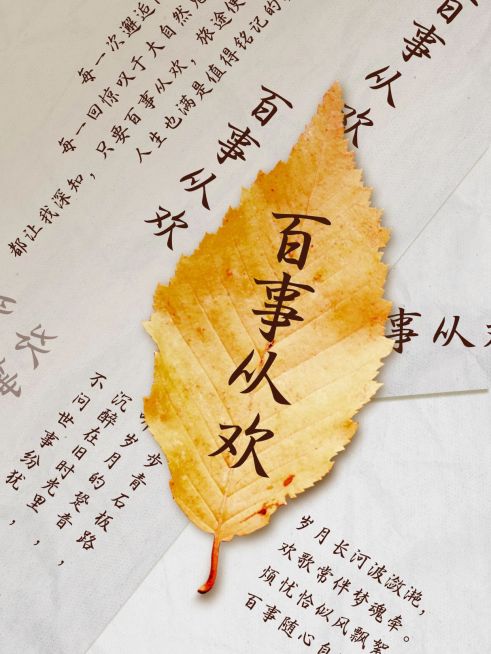 每一次邂逅
每一回惊叹于大自然
都让我深知，只要百事从欢，旅途便
人生也满是值得铭记的
百事从欢
百事从欢
百事从欢
事从欢
步青石板路
沉醉在旧时光里，
不问世事纷扰，
岁月的跫音，
岁月长河波潋滟，
欢歌常伴梦魂牵。
烦忧恰似风飘絮
百事随心自